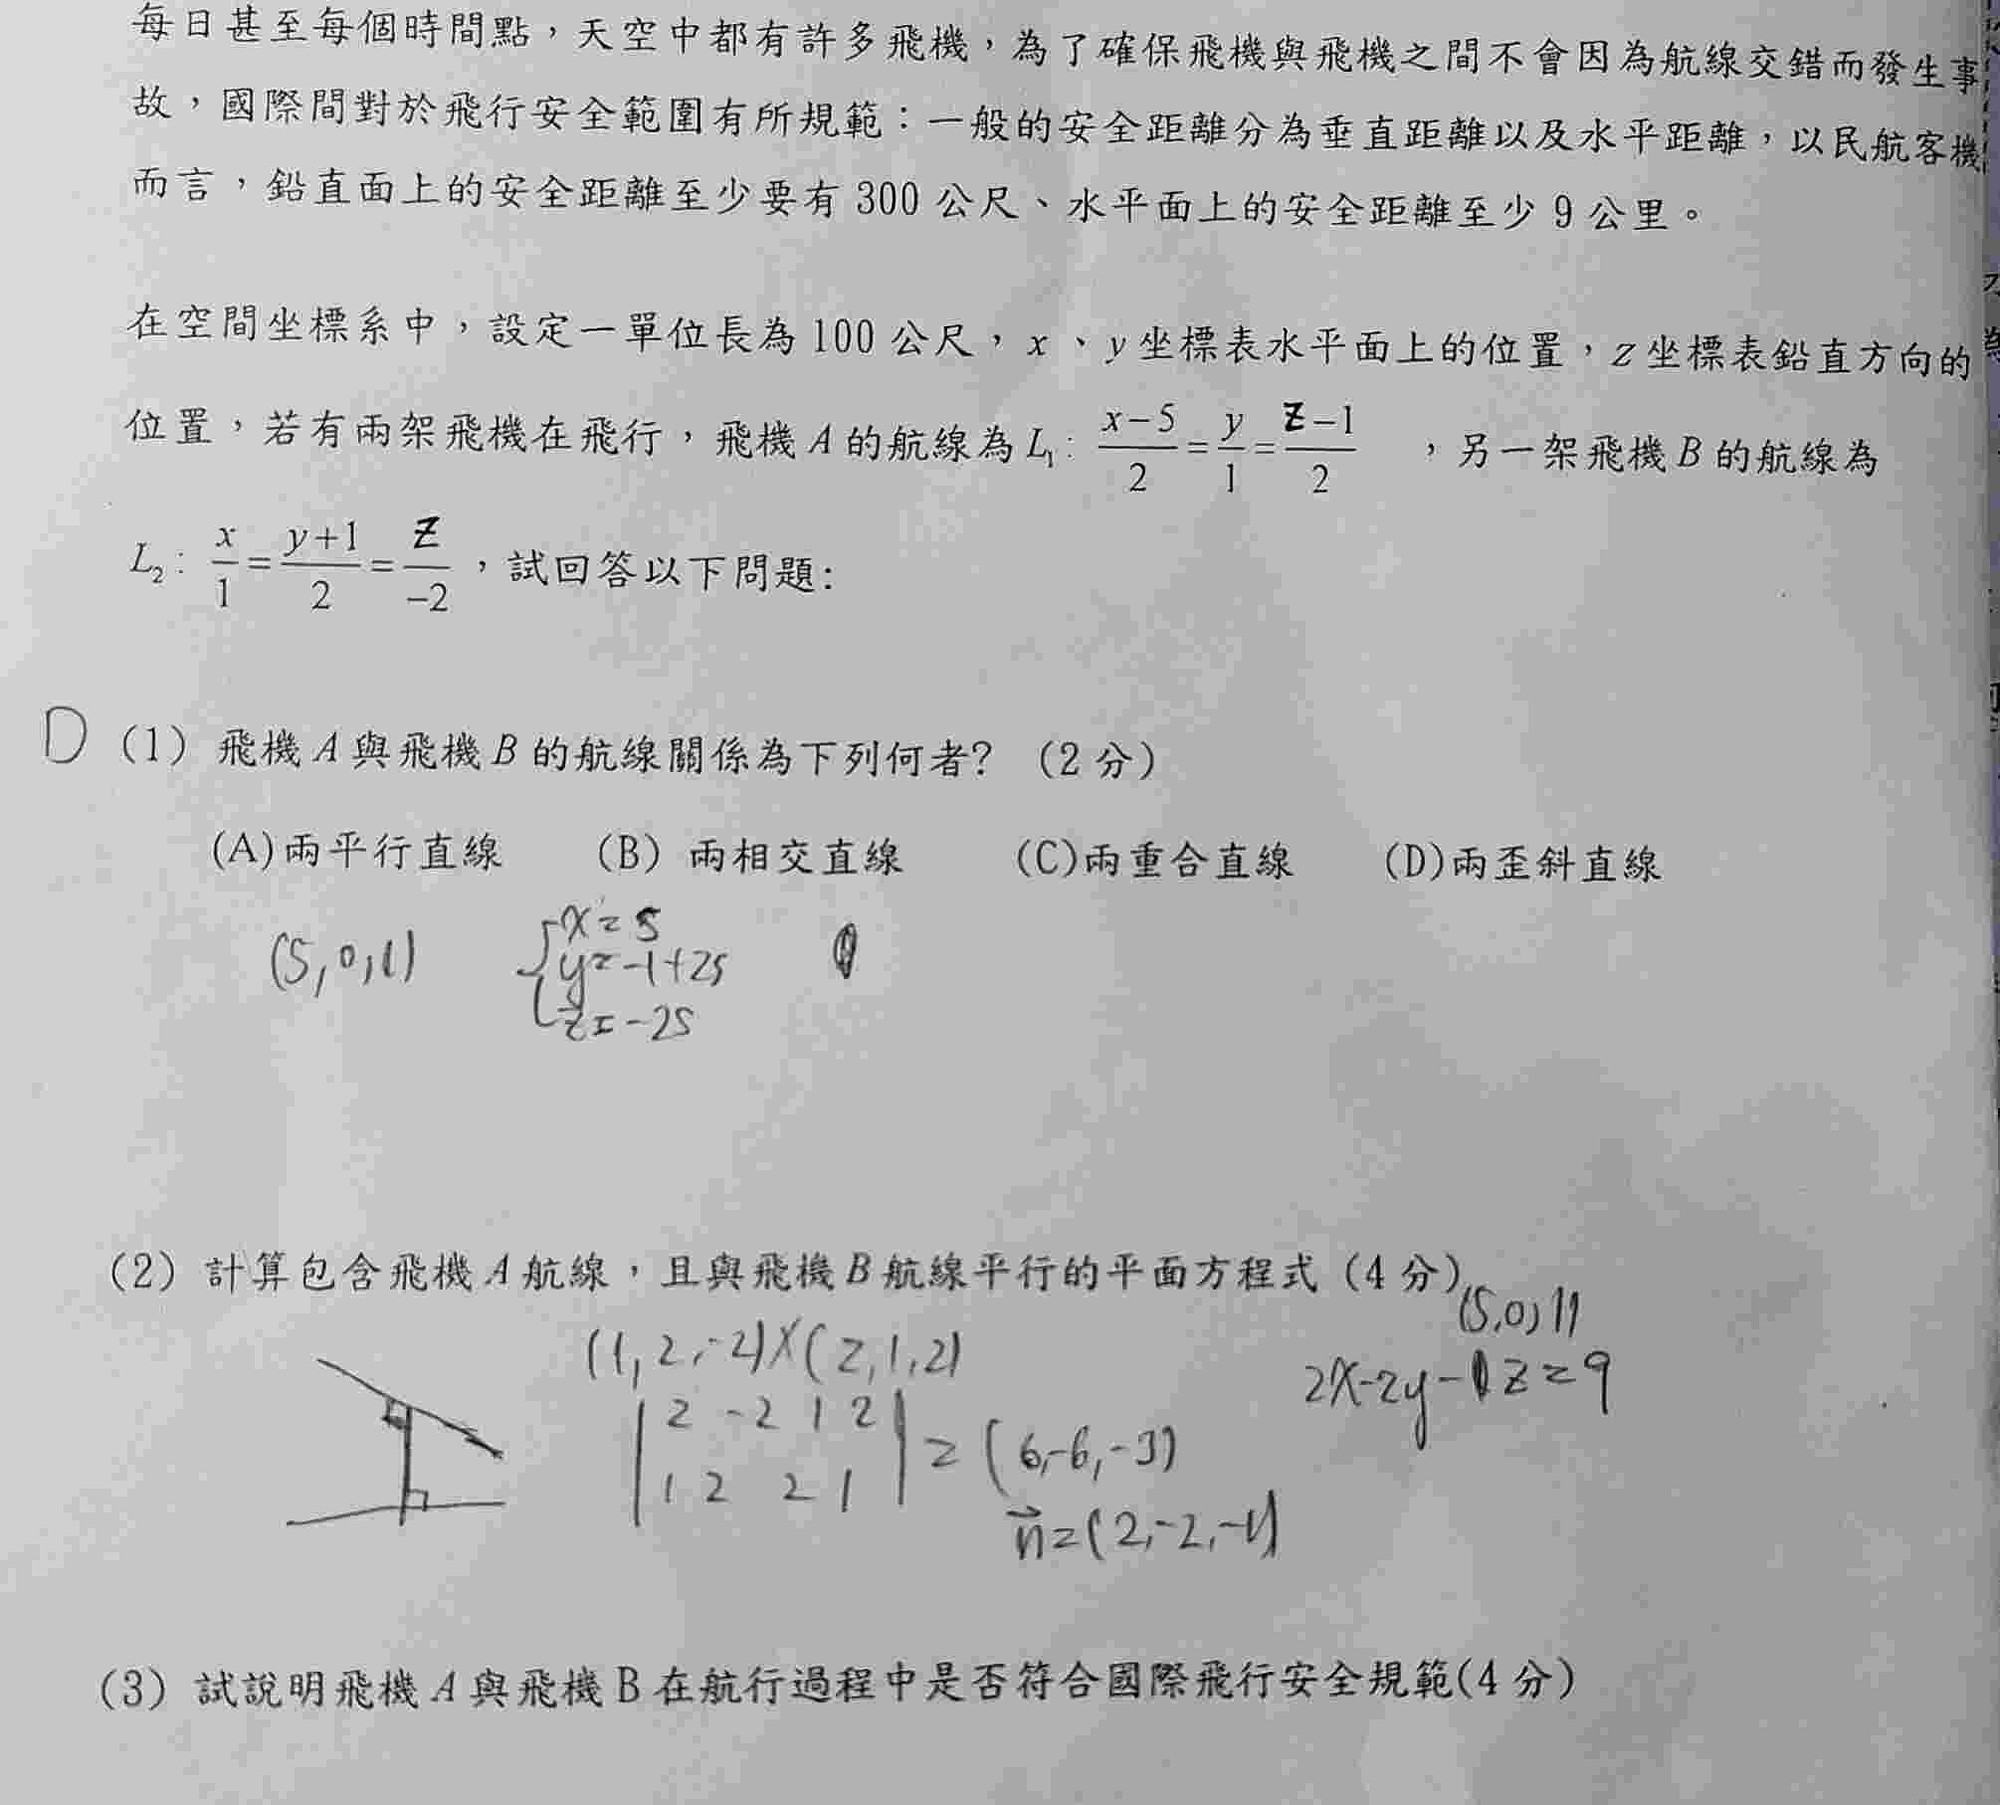 每日甚至每個時間點，天空中都有許多飛機，為了確保飛機與飛機之間不會因為航線交錯而發生事
故，國際間對於飛行安全範圍有所規範：一般的安全距離分為垂直距離以及水平距離，以民航客機
而言，鉛直面上的安全距離至少要有 300 公尺、水平面上的安全距離至少 9 公里。
在空間坐標系中，設定一單位長為 100 公尺，x、y 坐標表水平面上的位置，z 坐標表鉛直方向的
位置，若有兩架飛機在飛行，飛機 A 的航線為 L₁: (x-5)/2 = y/1 = (z-1)/2 ，另一架飛機 B 的航線為
L₂: x/1 = (y+1)/2 = z/-2 ，試回答以下問題:
D (1) 飛機 A 與飛機 B 的航線關係為下列何者? (2 分)
(A)兩平行直線 (B) 兩相交直線 (C)兩重合直線 (D)兩歪斜直線
(5,0,1)
x=s
y=-1+2s
z=-2s
(2) 計算包含飛機 A 航線，且與飛機 B 航線平行的平面方程式 (4 分)
(5,0,1)
(1,2,-2)×(2,1,2)
2x-2y-z=9
2 -2 1 2
1 2 2 1
=(6,-6,-3)
n=(2,-2,-1)
(3) 試說明飛機 A 與飛機 B 在航行過程中是否符合國際飛行安全規範(4 分)